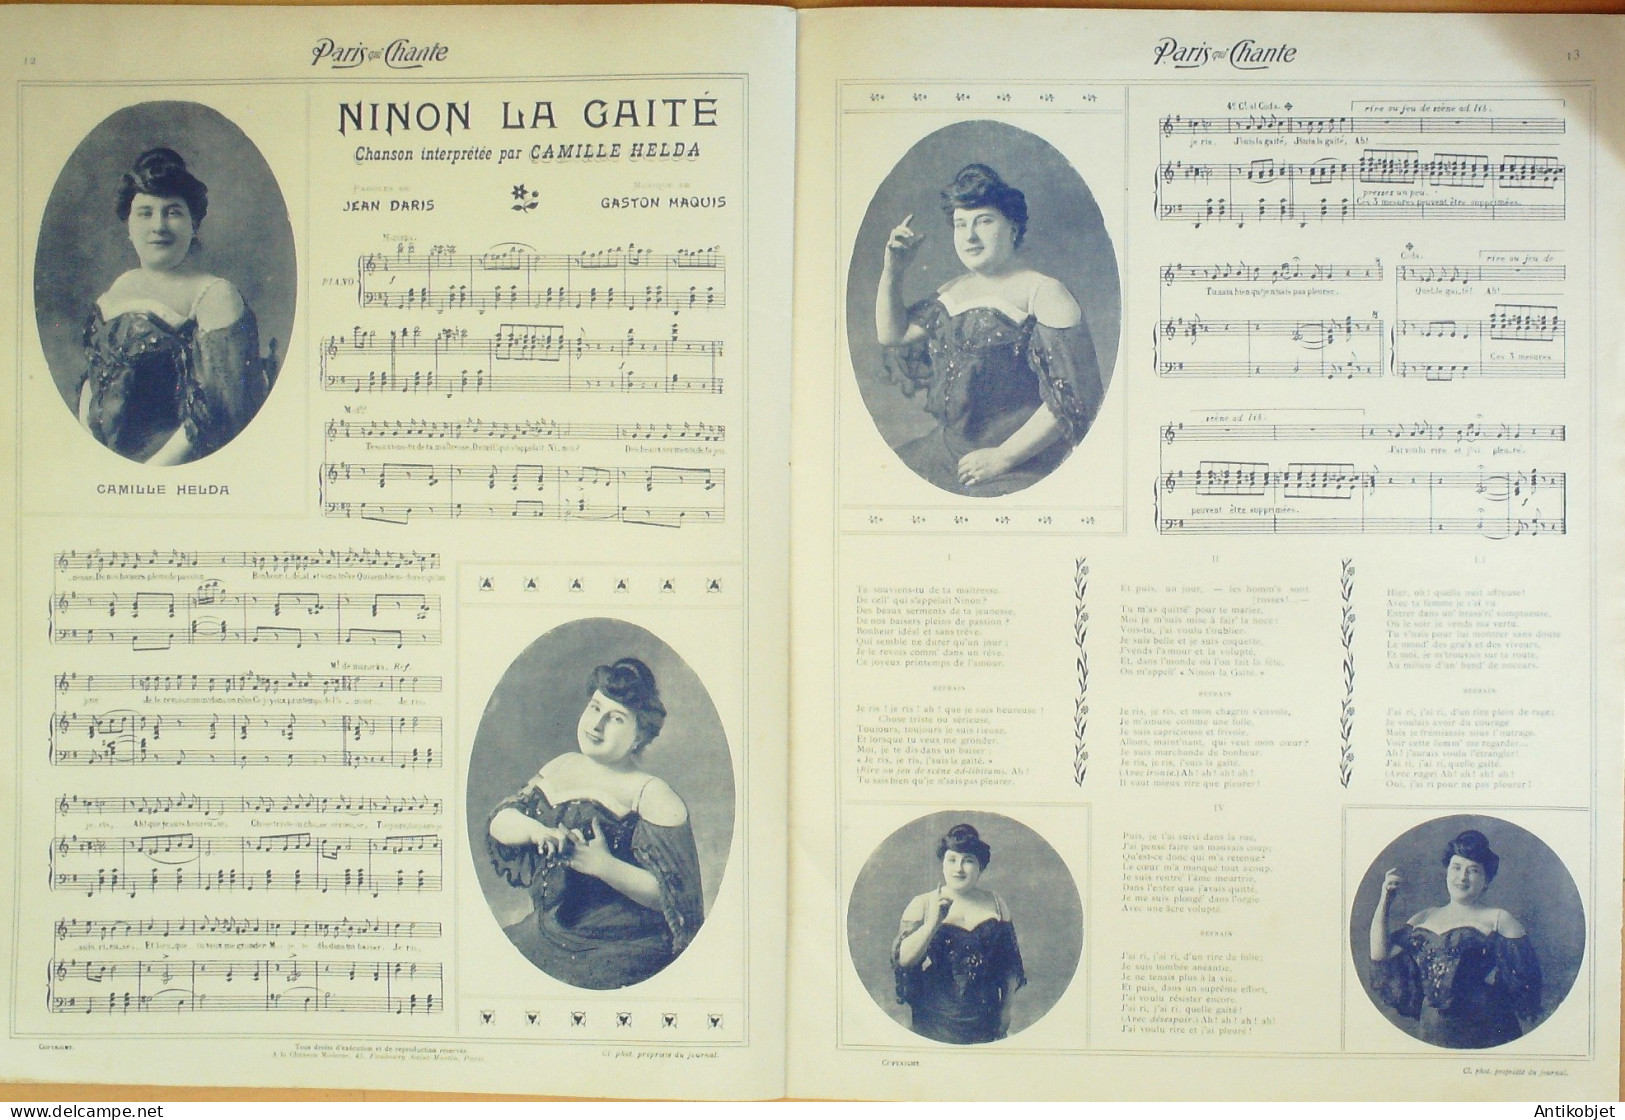 12
Paris qui Chante
NINON LA GAITÉ
Chanson interprétée par CAMILLE HELDA
PAROLES DE
JEAN DARIS
MUSIQUE DE
GASTON MAQUIS
PIANO
CAMILLE HELDA
COPYRIGHT.
Tous droits d'exécution et de reproduction réservés
A la Chanson Moderne, 42, Faubourg Saint-Martin, Paris.
Cl. phot. propriété du journal.
Paris qui Chante
13
4e Ct. al Coda.
rire ou jeu de scène ad. lib.
je ris, J'suis la gaîté, J'suis la gaîté, Ah!
pressez un peu.
Ces 3 mesures peuvent être supprimées.
Coda.
rire ou jeu de
Tu sais bien qu'je n'sais pas pleurer.
Quel-le gaî-té! Ah!
Ces 3 mesures
scène ad. lib.
J'ai voulu rire et j'ai pleu-ré.
peuvent être supprimées.
I
Tu souviens-tu de ta maîtresse,
De cell' qui s'appelait Ninon?
Des beaux serments de ta jeunesse,
De nos baisers pleins de passion?
Bonheur idéal et sans trêve,
Qui semble ne durer qu'un jour;
Je le revois comm' dans un rêve,
Ce joyeux printemps de l'amour.
REFRAIN
Je ris! je ris! ah! que je suis heureuse!
Chose triste ou sérieuse,
Toujours, toujours je suis rieuse,
Et lorsque tu veux me gronder,
Moi, je te dis dans un baiser:
« Je ris, je ris, j'suis la gaîté. »
(Rire ou jeu de scène ad-libitum). Ah!
Tu sais bien qu'je n'sais pas pleurer.
II
Et puis, un jour, — les homm's sont
[rosses!...—
Tu m'as quitté pour te marier,
Moi je m'suis mise à fair' la noce;
Vois-tu, j'ai voulu t'oublier.
Je suis belle et je suis coquette,
J'vends l'amour et la volupté,
Et, dans l'monde où l'on fait la fête,
On m'appell' « Ninon la Gaîté. »
REFRAIN
Je ris, je ris, et mon chagrin s'envole,
Je m'amuse comme une folle,
Je suis capricieuse et frivole,
Allons, maint'nant, qui veut mon cœur?
Je suis marchande de bonheur.
Je ris, je ris, j'suis la gaîté.
(Avec ironie.) Ah! ah! ah! ah!
Il vaut mieux rire que pleurer!
III
Hier, oh! quelle nuit affreuse!
Avec ta femme je t'ai vu
Entrer dans un' brass'ri' somptueuse,
Où le soir je vends ma vertu.
Tu v'nais pour lui montrer sans doute
Le mond' des gru's et des viveurs,
Et moi, je m'trouvais sur ta route,
Au milieu d'un' band' de noceurs.
REFRAIN
J'ai ri, j'ai ri, d'un rire plein de rage;
Je voulais avoir du courage
Mais je frémissais sous l'outrage,
Voir cette femm' me regarder...
Ah! j'aurais voulu l'étrangler!
J'ai ri, j'ai ri, quelle gaîté.
(Avec rage) Ah! ah! ah! ah!
Oui, j'ai ri pour ne pas pleurer!
IV
Puis, je t'ai suivi dans la rue,
J'ai pensé faire un mauvais coup;
Qu'est-ce donc qui m'a retenue?
Le cœur m'a manqué tout à coup.
Je suis rentré' l'âme meurtrie,
Dans l'enfer que j'avais quitté,
Je me suis plongé' dans l'orgie
Avec une âcre volupté.
REFRAIN
J'ai ri, j'ai ri, d'un rire de folie;
Je suis tombée anéantie,
Je ne tenais plus à la vie,
Et puis, dans un suprême effort,
J'ai voulu résister encore,
J'ai ri, j'ai ri, quelle gaîté!
(Avec désespoir.) Ah! ah! ah! ah!
J'ai voulu rire et j'ai pleuré!
COPYRIGHT.
Cl. phot. propriété du journal.
Antikobjet - delcampe.net